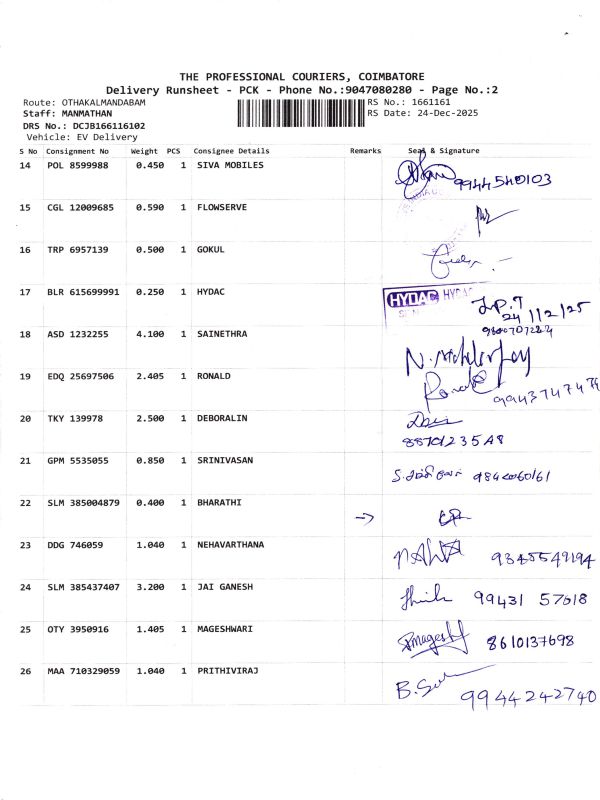 THE PROFESSIONAL COURIERS, COIMBATORE
Delivery Runsheet - PCK - Phone No.:9047080280 - Page No.:2
Route: OTHAKALMANDABAM RS No.: 1661161
Staff: MANMATHAN RS Date: 24-Dec-2025
DRS No.: DCJB166116102
Vehicle: EV Delivery
S No Consignment No Weight PCS Consignee Details Remarks Seal & Signature
14 POL 8599988 0.450 1 SIVA MOBILES 9944540103
15 CGL 12009685 0.590 1 FLOWSERVE
16 TRP 6957139 0.500 1 GOKUL
17 BLR 615699991 0.250 1 HYDAC HYDAC 24/12/25
18 ASD 1232255 4.100 1 SAINETHRA
19 EDQ 25697506 2.405 1 RONALD Ronald
20 TKY 139978 2.500 1 DEBORALIN
21 GPM 5535055 0.850 1 SRINIVASAN
22 SLM 385004879 0.400 1 BHARATHI
23 DDG 746059 1.040 1 NEHAVARTHANA 9345549194
24 SLM 385437407 3.200 1 JAI GANESH 99431 57618
25 OTY 3950916 1.405 1 MAGESHWARI 8610137698
26 MAA 710329059 1.040 1 PRITHIVIRAJ 9944242740